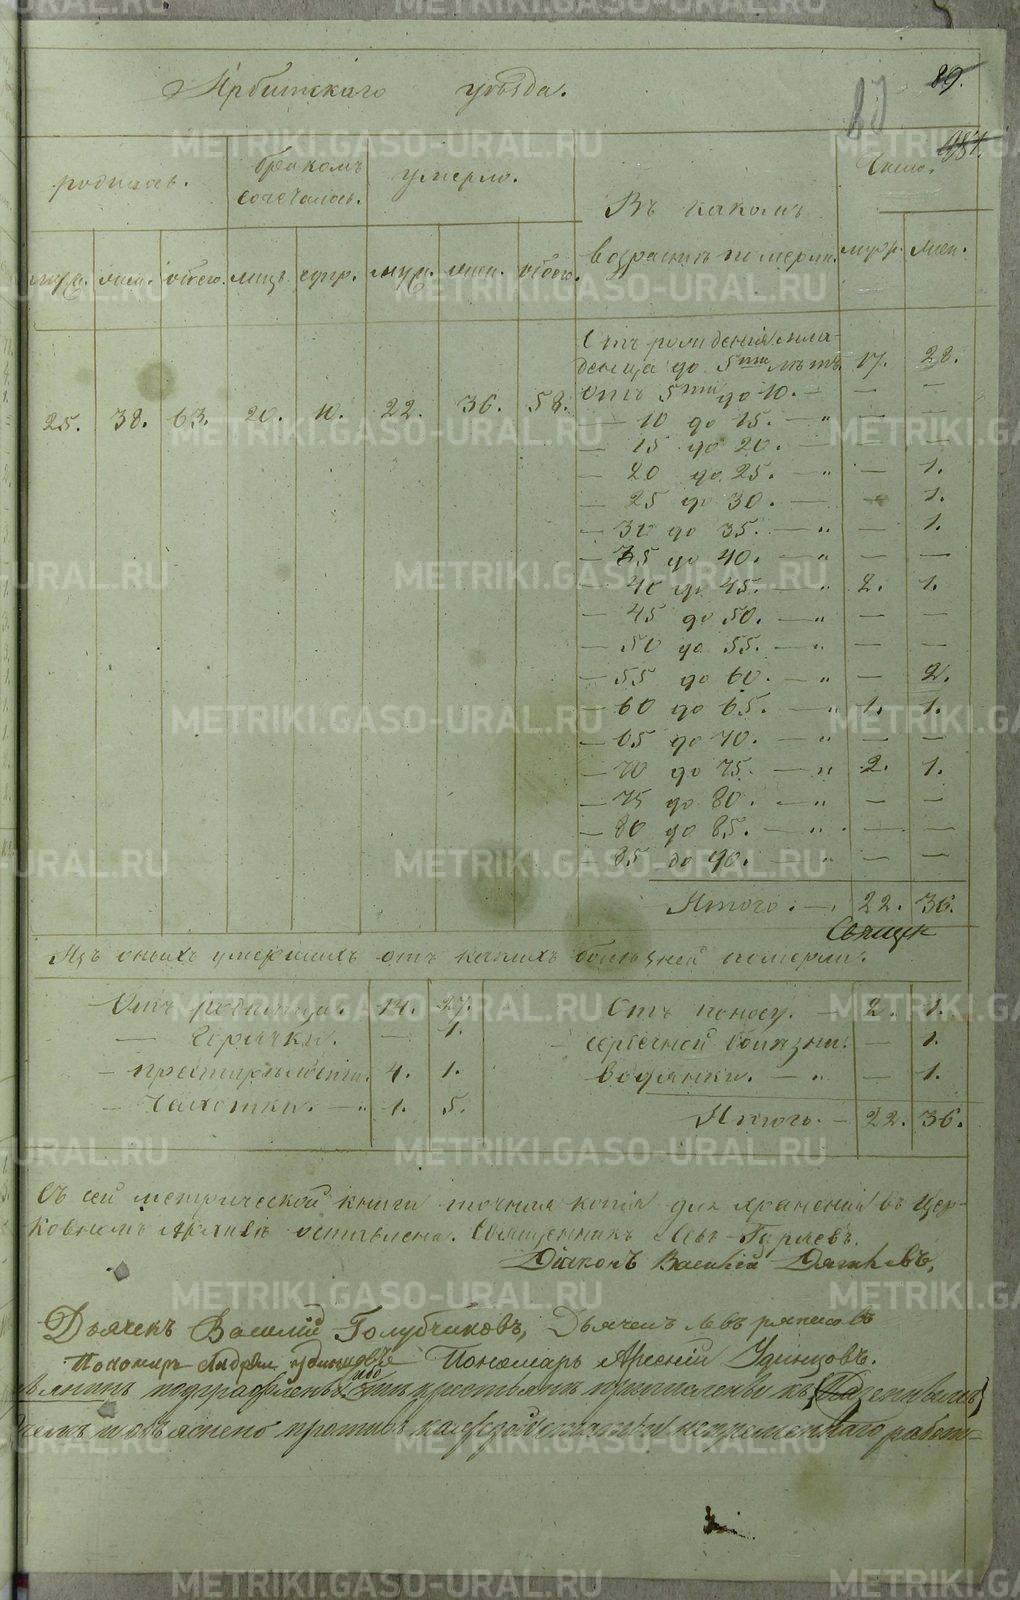 Ирбитскаго уѣзда.
89.
родилось. бракомъ сочеталось. умерло. Въ какомъ возрастѣ померли. Число.
муж. жен. обоего. лицъ супр. муж. жен. обоего. муж. жен.
25. 38. 63. 20. 10. 22. 36. 58.
Отъ рожденія мла-
денца до 5ти лѣтъ. 17. 28.
Отъ 5ти до 10. — — —
— 10 до 15. — „ — —
— 15 до 20. — — —
— 20 до 25. — „ — 1.
— 25 до 30. — — 1.
— 30 до 35. — „ — 1.
— 35 до 40. — „ — —
— 40 до 45. — „ 2. 1.
— 45 до 50. — „ — —
— 50 до 55. — „ — —
— 55 до 60. — „ — 2.
— 60 до 65. — „ 1. 1.
— 65 до 70. — „ — —
— 70 до 75. — „ 2. 1.
— 75 до 80. — „ — —
— 80 до 85. — „ — —
— 85 до 90. — „ — —
Итого. — 22. 36.
Свящек
Изъ оныхъ умершихъ отъ какихъ болѣзней померли:
Отъ родимца. 14. 27. Отъ поносу. — 2. 1.
— Горячки. — 1. — сердечной болѣзни. — 1.
— престарѣлости. 4. 1. водянки. — „ — 1.
— Чахотки. — „ 1. 5. Итого. — 22. 36.
Съ сей метрической книги точная копія для храненія въ Цер-
ковномъ Архивѣ оставлена. Священникъ Левъ
Діаконъ Василій
Дьячекъ Василій Голубчиковъ, Дьячекъ Левъ
Пономарь Андрей Удинцовъ Пономарь Арсеній Удинцовъ.
METRIKI.GASO-URAL.RU